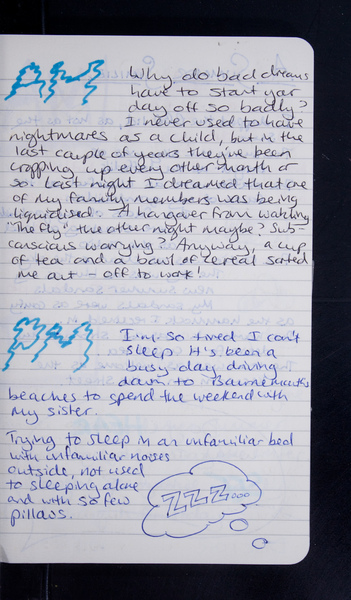 Why do bad dreams
have to start your
day off so badly?
I never used to have
nightmares as a child, but in the
last couple of years they've been
cropping up every other month or
so. Last night I dreamed that one
of my family members was being
liquidised - A hangover from watching
"The Fly" the other night maybe? Sub-
conscious worrying? Anyway, a cup
of tea and a bowl of cereal sorted
me out - off to work!
I'm so tired I can't
sleep. It's been a
busy day driving
down to Bournemouths
beaches to spend the weekend with
my sister.
Trying to sleep in an unfamiliar bed
with unfamiliar noises
outside, not used
to sleeping alone
and with so few
pillows.
ZZZ...